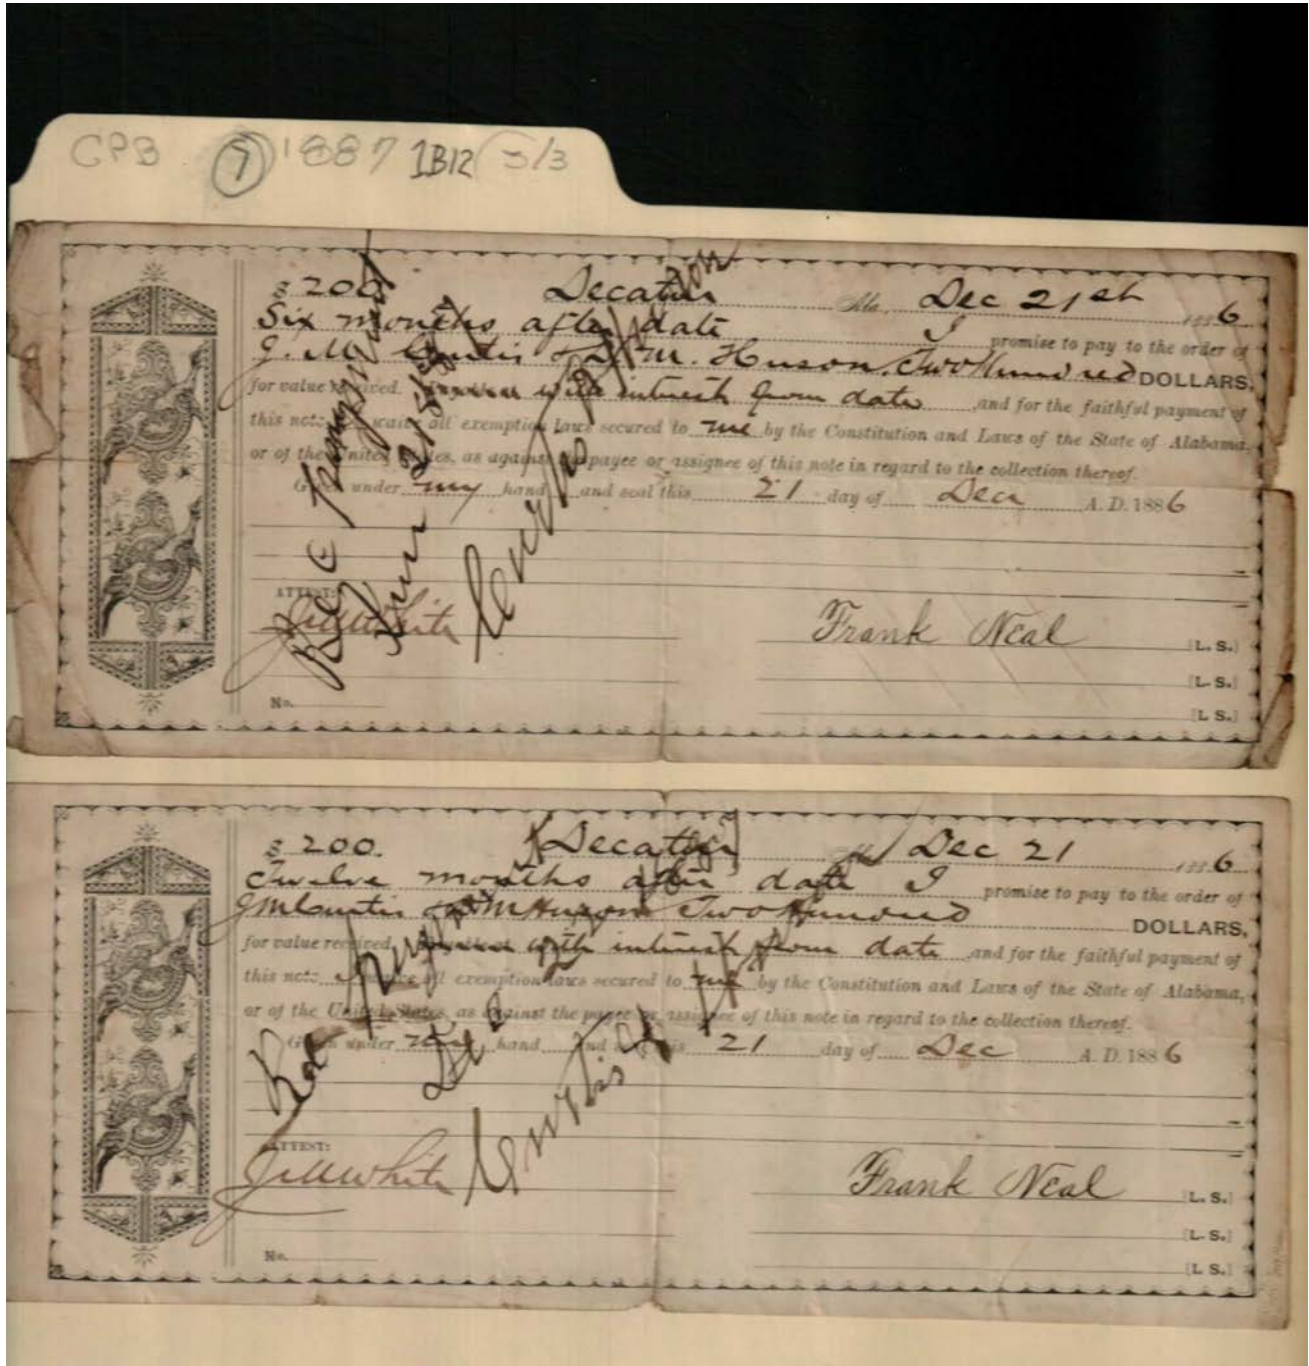 CPB 7 1887 1B12 3/3
$ 200. Decatur Ala, Dec 21st 1886
Six months after date I promise to pay to the order of
J. M. Curtis & M. Huson Two Hundred DOLLARS,
for value received. with interest from date and for the faithful payment of
this note waive all exemption laws secured to me by the Constitution and Laws of the State of Alabama,
or of the United States, as against the payee or assignee of this note in regard to the collection thereof.
Given under my hand and seal this 21 day of Decr A. D. 1886
ATTEST:
White
Frank Neal [L. S.]
[L. S.]
No. [L. S.]
Curtis
$ 200. Decatur Dec 21 1886
Twelve months after date I promise to pay to the order of
J M Curtis & M Huson Two Hundred DOLLARS,
for value received, with interest from date and for the faithful payment of
this note all exemption laws secured to me by the Constitution and Laws of the State of Alabama,
or of the United States, as against the payee or assignee of this note in regard to the collection thereof.
Given under my hand and this 21 day of Dec A. D. 1886
ATTEST:
White
Frank Neal [L. S.]
[L. S.]
No. [L. S.]
Rec
Dec
Curtis &